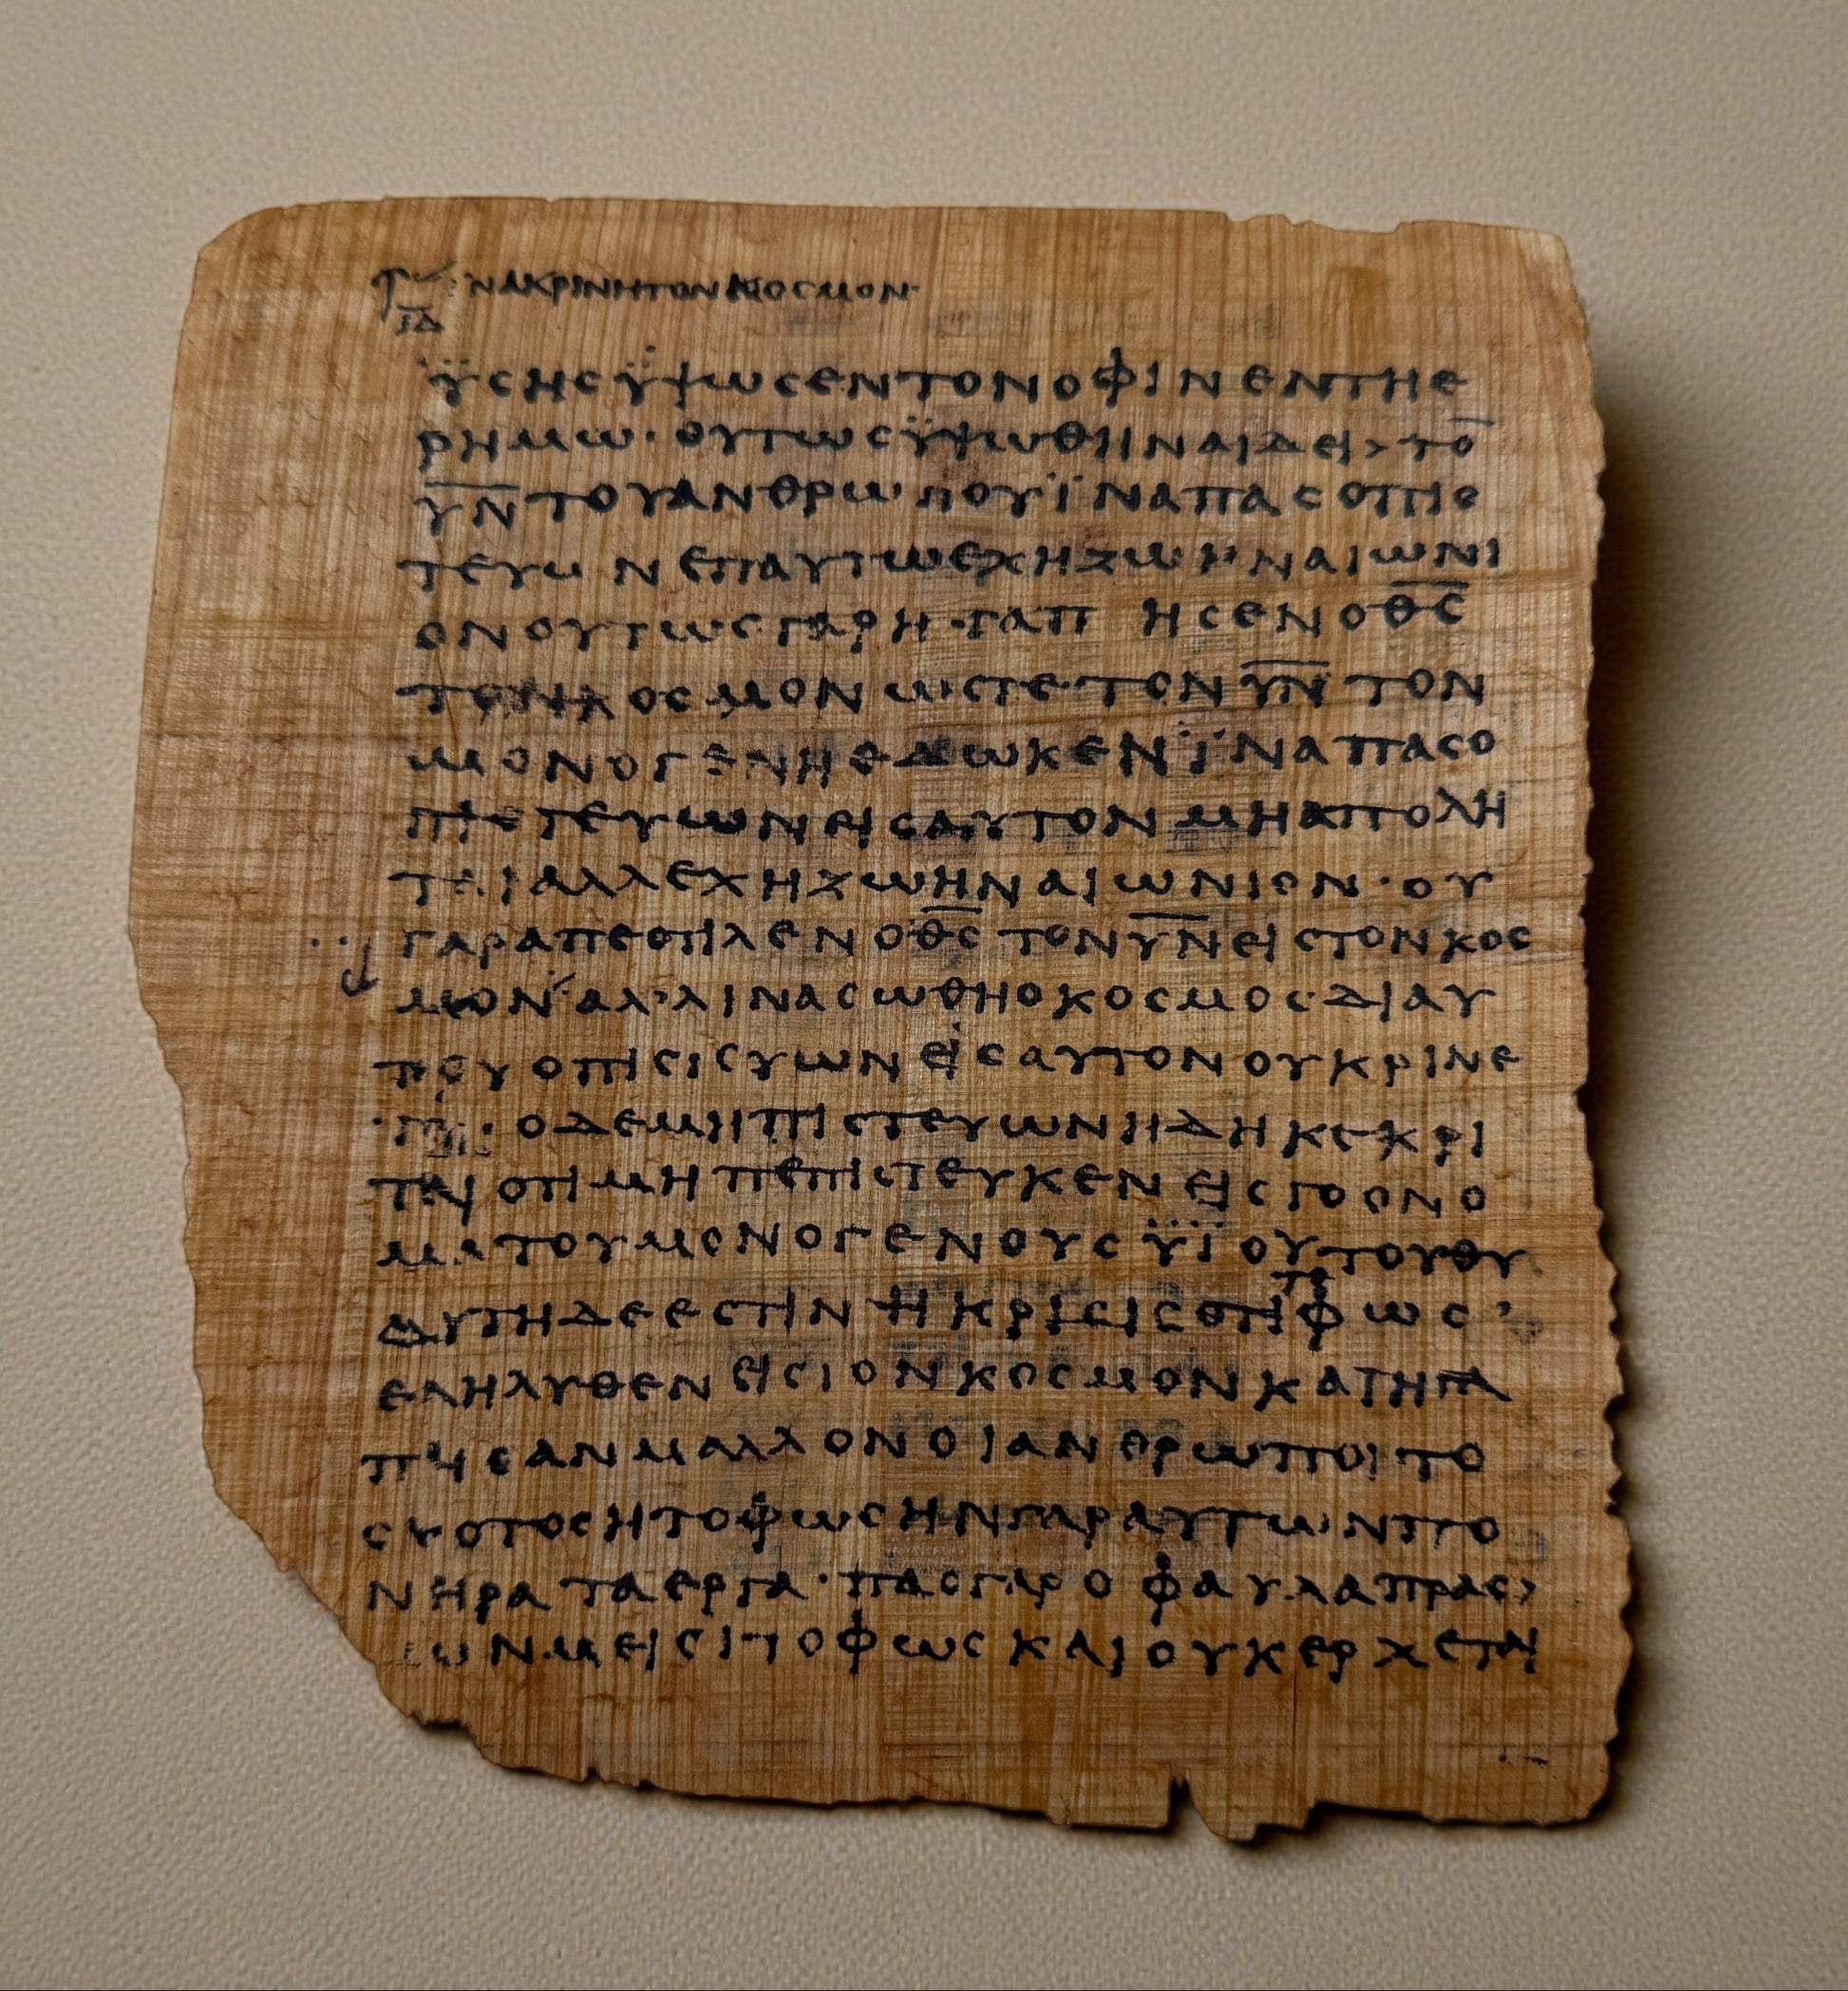 ΝΑΚΡΙΝΗΤΟΝΚΟCΜΟΝ·
ΙΔ
ΫCΗCΫΨΩCΕΝΤΟΝΟΦΙΝΕΝΤΗΕ
ΡΗΜΩ·ΟΥΤΩCΫΨΩΘΗΝΑΙΔΕΙ>ΤΟ̅
Υ̅Ν̅ΤΟΥΑΝΘΡΩΠΟΥΪΝΑΠΑCΟΠΙC
ΤΕΥΩΝΕΠΑΥΤΩΕΧΗΖΩΗΝΑΙΩΝΙ
ΟΝΟΥΤΩCΓΑΡΗΓΑΠΗCΕΝΟΘ̅C̅
ΤΟΝΚΟCΜΟΝΩCΤΕΤΟΝΥ̅Ν̅ΤΟΝ
ΜΟΝΟΓΕΝΗΕΔΩΚΕΝΪΝΑΠΑCΟ
ΠΙCΤΕΥΩΝΕΙCΑΥΤΟΝΜΗΑΠΟΛΗ
ΤΑΙΑΛΛΕΧΗΖΩΗΝΑΙΩΝΙΟΝ·ΟΥ
ΓΑΡΑΠΕCΤΙΛΕΝΟΘ̅C̅ΤΟΝΥ̅Ν̅ΕΙCΤΟΝΚΟC
ΜΟΝ᾿ΑΛ᾿ΛΙΝΑCΩΘΗΟΚΟCΜΟC·ΔΙΑΥ
ΟΠΙCΙCΥΩΝΕΙCΑΥΤΟΝΟΥΚΡΙΝΕ
ΟΔΕΜΗΠΙCΤΕΥΩΝΗΔΗΚΕΚΡΙ
ΤΑΙΟΤΙΜΗΠΕΠΙCΤΕΥΚΕΝΕΙCΤΟΟΝΟ
ΜΑΤΟΥΜΟΝΟΓΕΝΟΥCΫΪΟΥΤΟΥΘΥ
ΑΥΤΗΔΕΕCΤΙΝΗΚΡΙCΙCΟΤΙ\ΤΟ/ΦΩC
ΕΛΗΛΥΘΕΝΕΙCΤΟΝΚΟCΜΟΝΚΑΙΗΓΑ
ΠΗCΑΝΜΑΛΛΟΝΟΙΑΝΘΡΩΠΟΙΤΟ
CΚΟΤΟCΗΤΟΦΩCΗΝΓΑΡΑΥΤΩΝΠΟ
ΝΗΡΑΤΑΕΡΓΑ·ΠΑCΓΑΡΟΦΑΥΛΑΠΡΑC
ΩΝΜΕΙCΙΤΟΦΩCΚΑΙΟΥΚΕΡΧΕΤΑΙ